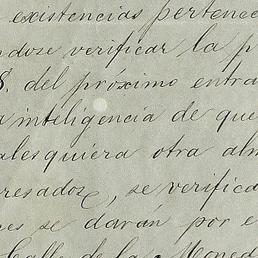 existencias pertenec
ndose verificar la p
8 del proximo entra
a inteligencia de que
alesquiera otra alm
resados, se verifica
es se darán por e
Calle de la Moned